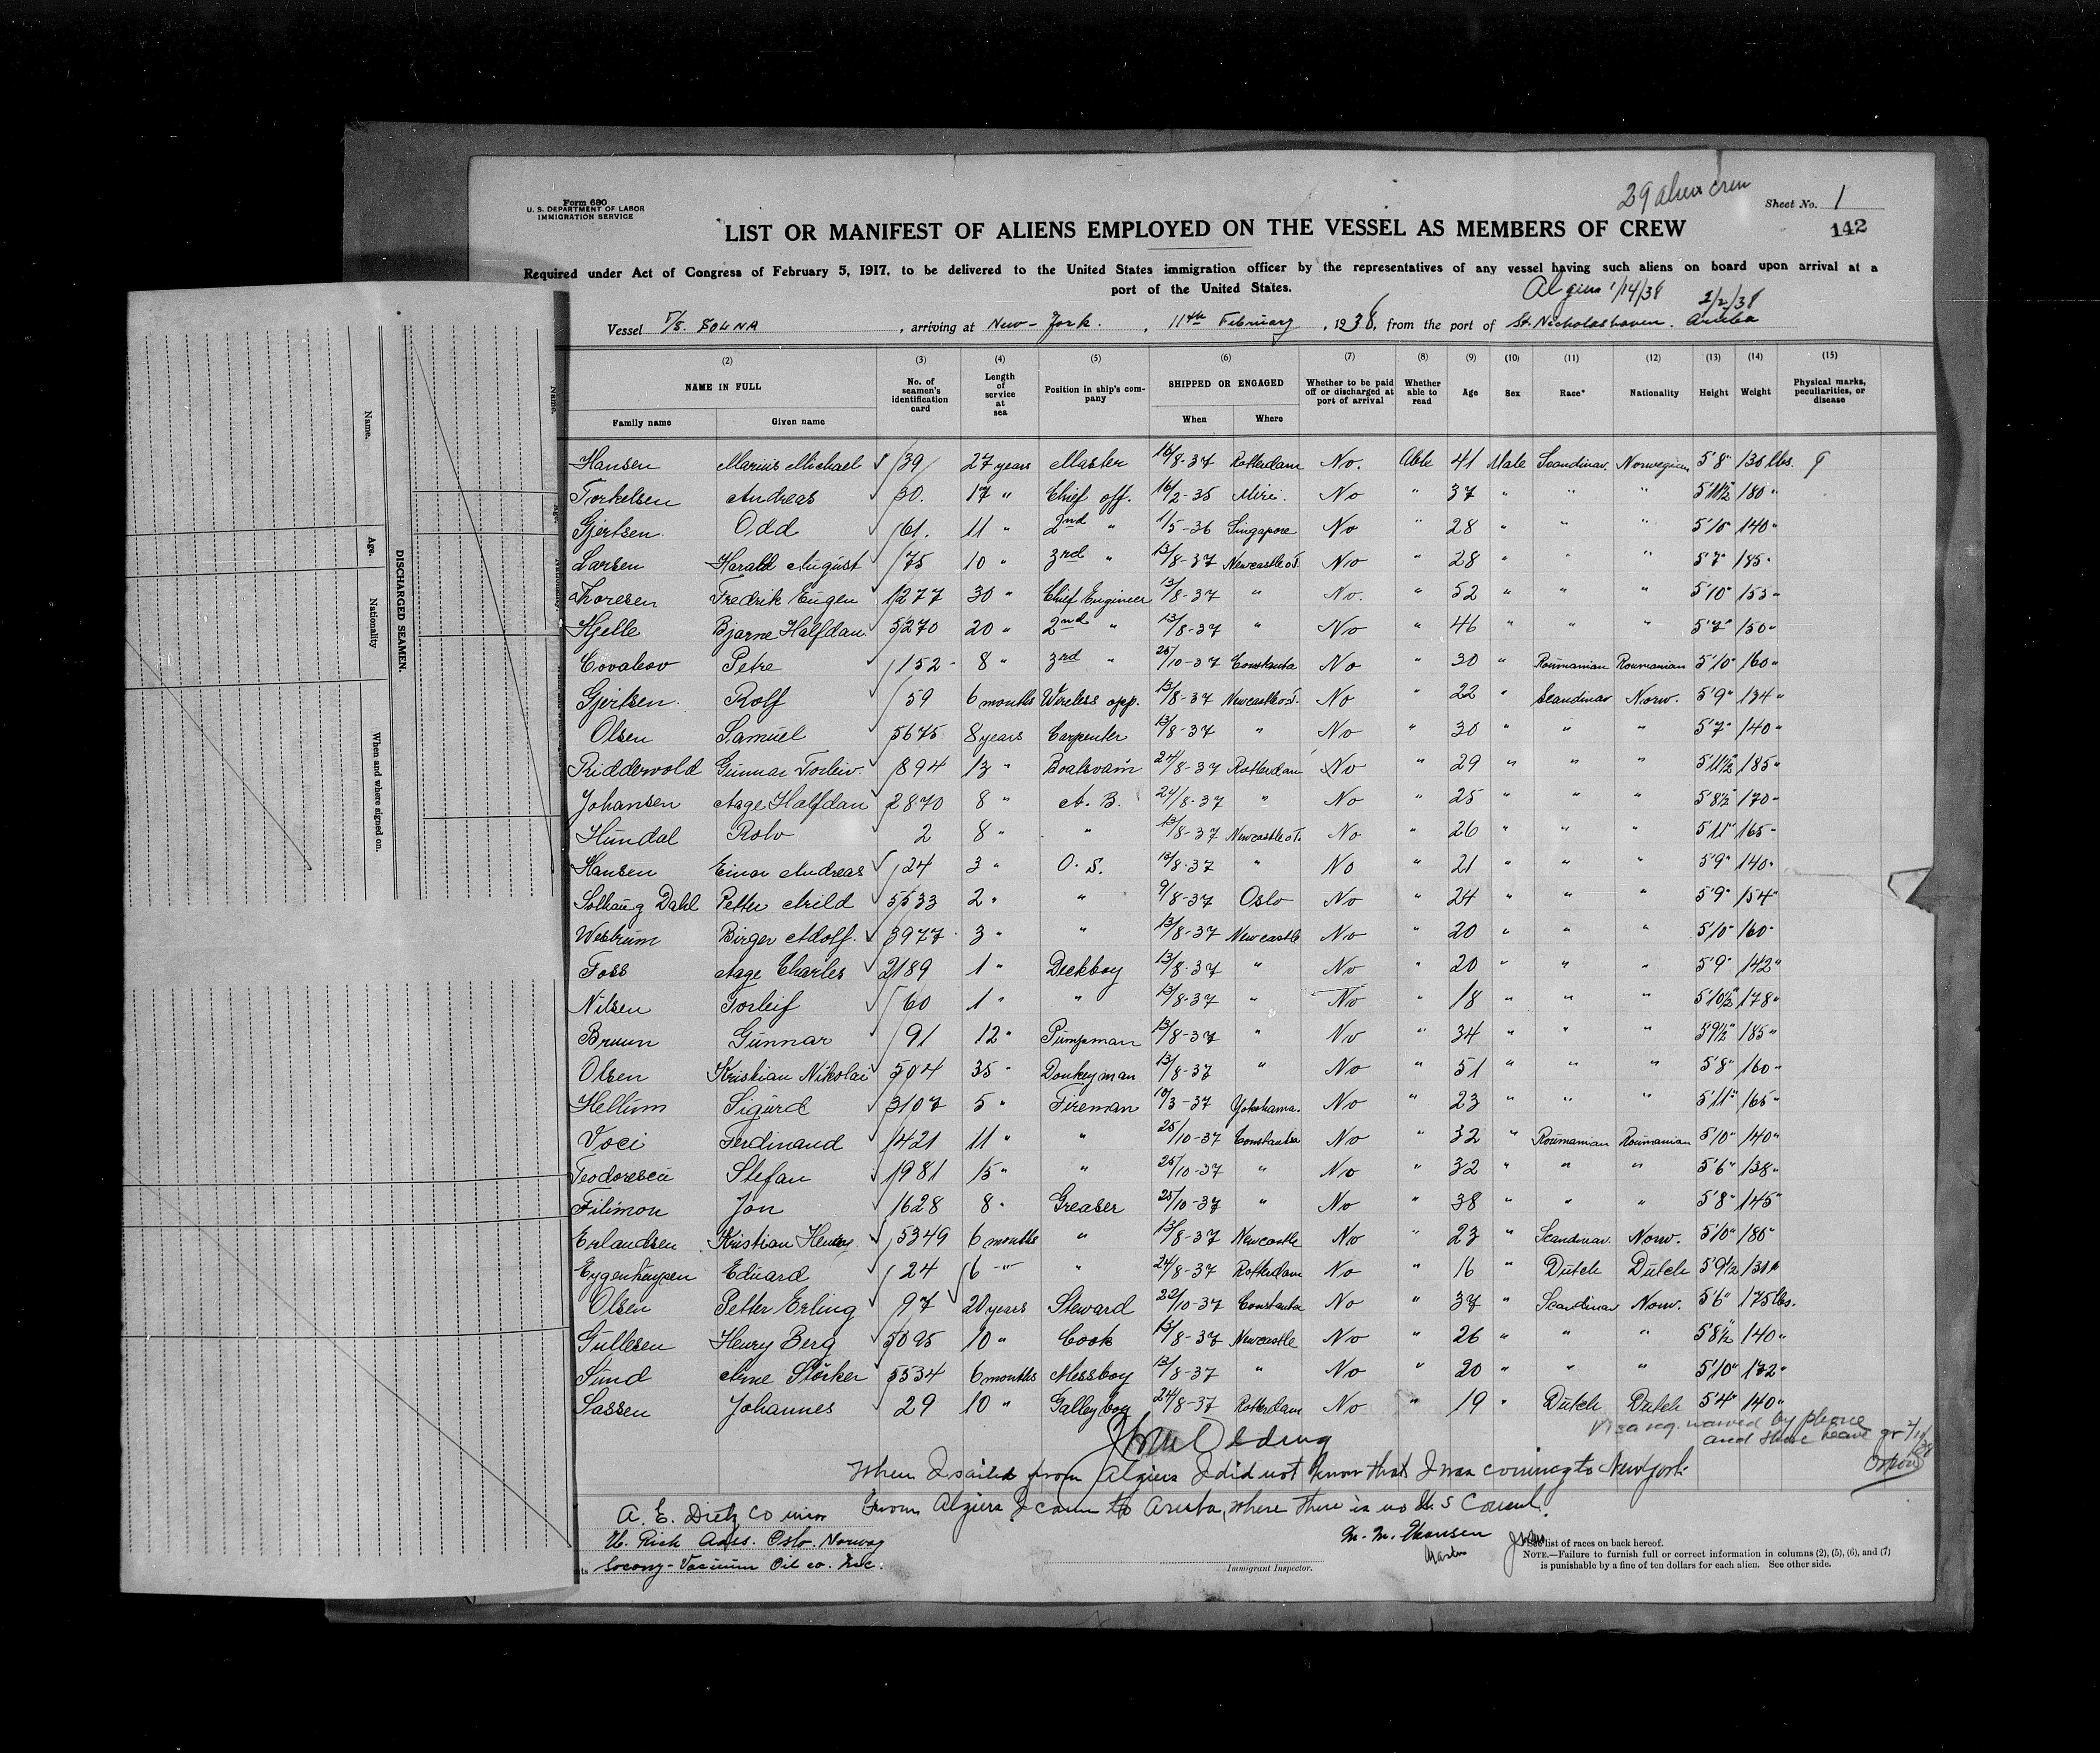 29 alien crew
Form 680
U. S. DEPARTMENT OF LABOR
IMMIGRATION SERVICE
Sheet No. 1
142
LIST OR MANIFEST OF ALIENS EMPLOYED ON THE VESSEL AS MEMBERS OF CREW
Required under Act of Congress of February 5, 1917, to be delivered to the United States immigration officer by the representatives of any vessel having such aliens on board upon arrival at a
port of the United States.
Algiers 1/14/38 2/2/38
Vessel T/S. SOLNA, arriving at New-York., 11th February, 1938, from the port of St. Nicholashaven. Aruba
(2) (3) (4) (5) (6) (7) (8) (9) (10) (11) (12) (13) (14) (15)
NAME IN FULL Family name Given name No. of seamen's identification card Length of service at sea Position in ship's company SHIPPED OR ENGAGED When Where Whether to be paid off or discharged at port of arrival Whether able to read Age Sex Race* Nationality Height Weight Physical marks, peculiarities, or disease
Hansen Marius Michael 39 27 years Master 16/8-37 Rotterdam No. Able 41 Male Scandinav. Norwegian 5'8" 130 lbs.
Torkelsen Andreas 30. 17 " Chief off. 16/2-35 Miri. No " 37 " " " 5'11½" 180 "
Gjertsen Odd 61. 11 " 2nd " 1/5-36 Singapore No " 28 " " " 5'10" 140 "
Larsen Harald August 75 10 " 3rd " 13/8-37 Newcastle o.T. No " 28 " " " 5'7" 185 "
Thoresen Fredrik Eugen 1277 30 " Chief Engineer 13/8-37 " No. " 52 " " " 5'10" 153 "
Hjelle Bjarne Halfdan 5270 20 " 2nd " 13/8-37 " No " 46 " " " 5'7" 150 "
Covaleov Petre 152 8 " 3rd " 25/10-37 Constanta No " 30 " Roumanian Roumanian 5'10" 160 "
Gjertsen Rolf 59 6 months Wireless opp. 13/8-37 Newcastle o.T. No " 22 " Scandinav Norw. 5'9" 134 "
Olsen Samuel 5675 8 years Carpenter 13/8-37 " No " 30 " " " 5'7" 140 "
Ridderwold Gunnar Torleiv 894 13 " Boatsvain 24/8-37 Rotterdam No " 29 " " " 5'11½" 185 "
Johansen Aage Halfdan 2870 8 " A. B. 24/8-37 " No " 25 " " " 5'8½" 170 "
Hundal Rolv 2 8 " " 13/8-37 Newcastle o.T. No " 26 " " " 5'11" 165 "
Hansen Einar Andreas 24 3 " O. S. 13/8-37 " No " 21 " " " 5'9" 140 "
Solhaug Dahl Petter Arild 5533 2 " " 9/8-37 Oslo No " 24 " " " 5'9" 154 "
Westrum Birger Adolf 3977 3 " " 13/8-37 Newcastle No " 20 " " " 5'10" 160 "
Foss Aage Charles 2189 1 " Deckboy 13/8-37 " No " 20 " " " 5'9" 142 "
Nilsen Torleif 60 1 " " 13/8-37 " No " 18 " " " 5'10½" 178 "
Bruun Gunnar 91 12 " Pumpman 13/8-37 " No " 34 " " " 5'9½" 185 "
Olsen Kristian Nikolai 504 35 " Donkeyman 13/8-37 " No " 51 " " " 5'8" 160 "
Hellum Sigurd 3107 5 " Fireman 10/3-37 Yokohama. No " 23 " " " 5'11" 165 "
Voci Ferdinand 1421 11 " " 25/10-37 Constanta No " 32 " Roumanian Roumanian 5'10" 140 "
Teodorescu Stefan 1981 15 " " 25/10-37 " No " 32 " " " 5'6" 138 "
Filimon Jon 1628 8 " Greaser 25/10-37 " No " 38 " " " 5'8" 145 "
Erlandsen Kristian Henry 5349 6 months " 13/8-37 Newcastle No " 23 " Scandinav. Norw. 5'10" 180 "
Eygenhuysen Eduard 24 6 " " 24/8-37 Rotterdam No " 16 " Dutch Dutch 5'9½" 131 "
Olsen Petter Erling 97 20 years Steward 22/10-37 Constanta No " 37 " Scandinav Norw. 5'6" 175 lbs.
Gullesen Henry Berg 5095 10 " Cook 13/8-37 Newcastle No " 26 " " " 5'8½" 140 "
Sund Arne Störker 5534 6 months Messboy 13/8-37 " No " 20 " " " 5'10" 132 "
Sassen Johannes 29 10 " Galleyboy 24/8-37 Rotterdam No " 19 " Dutch Dutch 5'4" 140 "
Visa req. waived by phone
and shore leave gr 2/11/38
When I sailed from Algiers I did not know that I was coming to New York.
From Algiers I came to Aruba, where there is no U S Consul.
A. E. Dietz
M. M. Hansen
Master
Rich Aass. Oslo. Norway
Socony-Vacuum Oil co. Inc.
Immigrant Inspector.
*See list of races on back hereof.
NOTE.—Failure to furnish full or correct information in columns (2), (5), (6), and (7)
is punishable by a fine of ten dollars for each alien. See other side.
DISCHARGED SEAMEN.
Name.
Age.
Nationality
When and where signed on.